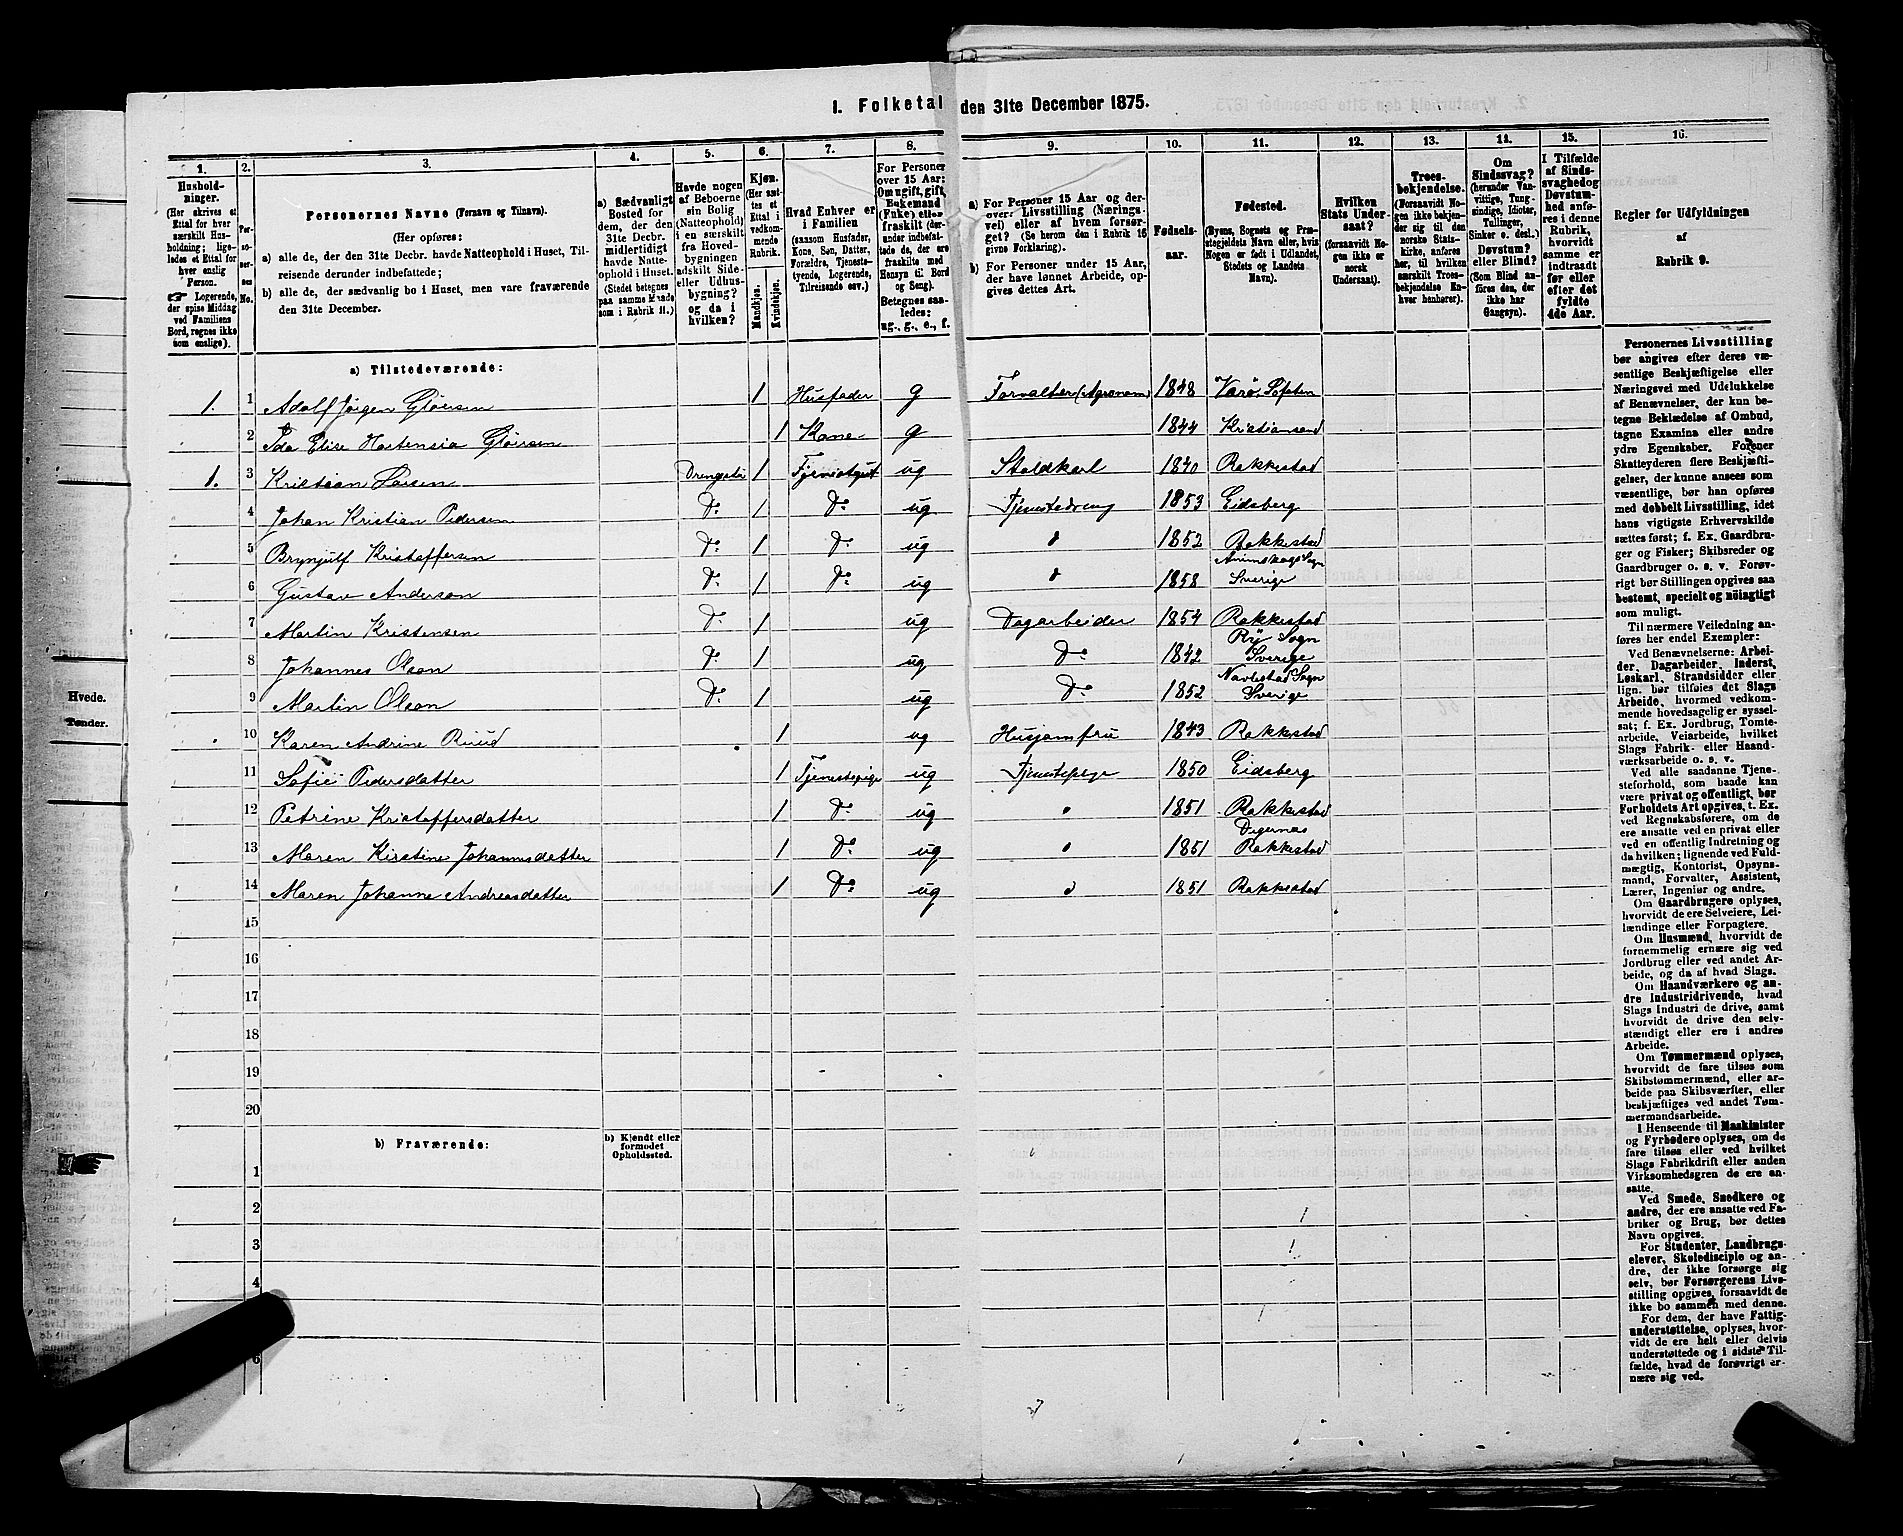 I. Folketal den 31te December 1875.
1. 2. 3. 4. 5. 6. 7. 8. 9. 10. 11. 12. 13. 14. 15. 16.
Hushold-
ninger.
(Her skrives et
Ettal for hver
særskilt Hus-
holdning; lige-
ledes et Ettal for
hver enslig
Person.
☛ Logerende,
der spise Middag
ved Familiens
Bord, regnes ikke
som enslige).
Per-
so-
ner-
nes
No.
Personernes Navne (Fornavn og Tilnavn).
(Her opføres:
a) alle de, der den 31te Decbr. havde Natteophold i Huset, Til-
reisende derunder indbefattede;
b) alle de, der sædvanlig bo i Huset, men vare fraværende
den 31te December.
a) Sædvanligt
Bosted for
dem, der den
31te Decbr.
midlertidigt
havde Natte-
ophold i Huset.
(Stedet betegnes
paa samme Maade
som i Rubrik 11.)
Havde nogen
af Beboerne
sin Bolig
(Natteophold)
i en særskilt
fra Hoved-
bygningen
adskilt Side-
eller Udhus-
bygning?
og da i
hvilken?
Kjøn.
(Her sæt-
tes et
Ettal i
vedkom-
mende
Rubrik.
Mandkjøn.
Kvindekjøn.
Hvad Enhver er
i Familien
(saasom Husfader,
Kone, Søn, Datter,
Forældre, Tjeneste-
tyende, Logerende,
Tilreisende osv.)
For Personer
over 15 Aar:
Om ugift, gift,
Enkemand
(Enke) eller
fraskilt (der-
under indbefat-
tede de, der ere
fraskilte med
Hensyn til Bord
og Seng).
Betegnes saa-
ledes:
ug., g., e., f.
a) For Personer 15 Aar og der-
over: Livsstilling (Nærings-
vei) eller af hvem forsør-
get? (Se herom den i Rubrik 16
givne Forklaring).
b) For Personer under 15 Aar,
der have lønnet Arbeide, op-
gives dettes Art.
Fødsels-
aar.
Fødested.
(Byens, Sognets og Præ-
stegjeldets Navn eller, hvis
Nogen er født i Udlandet,
Stedets og Landets
Navn).
Hvilken
Stats Under-
saat?
(forsaavidt No-
gen ikke er
norsk
Undersaat).
Troes-
bekjendelse.
(Forsaavidt No-
gen ikke bekjen-
der sig til den
norske Stats-
kirke, anføres
her, til hvilken
særskilt Troes-
bekjendelse En-
hver henhører).
Om
Sindssvag?
(herunder Van-
vittige, Tung-
sindige, Idioter,
Tullinger,
Sinker o. desl.)
Døvstum?
eller Blind?
(Som Blind an-
føres den, der
ikke har
Gangsyn).
I Tilfælde
af Sinds-
svaghed og
Døvstum-
hed anfø-
res i denne
Rubrik,
hvorvidt
samme er
indtraadt
før eller
efter det
fyldte
4de Aar.
Regler for Udfyldningen
af
Rubrik 9.
a) Tilstedeværende:
1. 1 Adolf Jørgen Gløersen 1 Husfader g Forvalter (Agronom) 1848 Værø, Lofoten
2 Ida Elise Hortensia Gløersen 1 Kone g 1844 Kristiansand
1. 3 Kristian Larsen Drengestu 1 Tjenestgut ug Staldkarl 1840 Rakkestad
4 Johan Kristian Pedersen Do 1 Do ug Tjenestedreng 1853 Eidsberg
5 Brynjulf Kristoffersen Do 1 Do ug " 1852 Rakkestad
6 Gustav Anderson Do 1 Do ug " 1858 Animskogs Sogn
Sverige
7 Martin Kristensen Do 1 ug Dagarbeider 1854 Rakkestad
8 Johannes Olson Do 1 ug Do 1842 Ry Sogn
Sverige
9 Martin Olson Do 1 ug Do 1852 Navlestad Sogn
Sverige
10 Karen Andrine Ruud 1 ug Husjomfru 1843 Rakkestad
11 Sofie Pedersdatter 1 Tjenestepige ug Tjenestepige 1850 Eidsberg
12 Petrine Kristoffersdatter 1 Do ug " 1851 Rakkestad
13 Maren Kirstine Johannesdatter 1 Do ug " 1851 Degernæs
Rakkestad
14 Maren Johanne Andreasdatter 1 Do ug " 1851 Rakkestad
15
16
17
18
19
20
b) Fraværende:
b) Kjendt eller
formodet
Opholdssted.
1
2
3
4
6
Hvede.
Tønder.
Personernes Livsstilling
bør angives efter deres væ-
sentlige Beskjæftigelse eller
Næringsvei med Udelukkelse
af Benævnelser, der kun be-
tegne Beklædelse af Ombud,
tagne Examina eller andre
ydre Egenskaber. Forener
Skatteyderen flere Beskjæfti-
gelser, der kunne ansees som
væsentlige, bør han opføres
med dobbelt Livsstilling, idet
hans vigtigste Erhvervskilde
sættes først; f. Ex. Gaardbru-
ger og Fisker; Skibsreder og
Gaardbruger o. s. v. Forøv-
rigt bør Stillingen opgives saa
bestemt, specielt og nøiagtigt
som muligt.
Til nærmere Veiledning an-
føres her endel Exempler:
Ved Benævnelserne: Arbei-
der, Dagarbeider, Inderst,
Løskarl, Strandsidder eller
lign. bør tilføies det Slags
Arbeide, hvormed vedkom-
mende hovedsagelig er syssel-
sat; f. Ex. Jordbrug, Tomte-
arbeide, Veiarbeide, hvilket
Slags Fabrik- eller Haand-
værksarbeide o. s. v.
Ved alle saadanne Tjene-
steforhold, som baade kan
være privat og offentligt, bør
Forholdets Art opgives, t. Ex.
ved Regnskabsførere, om de
ere ansatte ved en privat eller
ved en offentlig Indretning og
da hvilken; lignende ved Fuld-
mægtig, Kontorist, Opsyns-
mand, Forvalter, Assistent,
Lærer, Ingeniør og andre.
Om Gaardbrugere oplyses,
hvorvidt de ere Selveiere, Lei-
lændinge eller Forpagtere.
Om Husmænd, hvorvidt de
fornemmelig ernære sig ved
Jordbrug eller ved andet Ar-
beide, og da af hvad Slags.
Om Haandværkere og an-
dre Industridrivende, hvad
Slags Industri de drive, samt
hvorvidt de drive den selv-
stændigt eller ere i andres
Arbeide.
Om Tømmermænd oplyses,
hvorvidt de fare tilsøs som
Skibstømmermænd, eller ar-
beide paa Skibsværfter, eller
beskjæftiges ved andet Tøm-
mermandsarbeide.
I Henseende til Maskinister
og Fyrbødere oplyses, om de
fare tilsøs eller ved hvilket
Slags Fabrikdrift eller anden
Virksomhedsgren de ere an-
satte.
Ved Smede, Snedkere og
andre, der ere ansatte ved Fa-
briker og Brug, bør dettes
Navn opgives.
For Studenter, Landbrugs-
elever, Skoledisciple og an-
dre, der ikke forsørge sig
selv, bør Forsørgerens Livs-
stilling opgives, forsaavidt de
ikke bo sammen med denne.
For dem, der have Fattig-
understøttelse, oplyses, hvor-
vidt de ere helt eller delvis
understøttede og i sidste Til-
fælde, hvad de forøvrigt er-
nære sig ved.